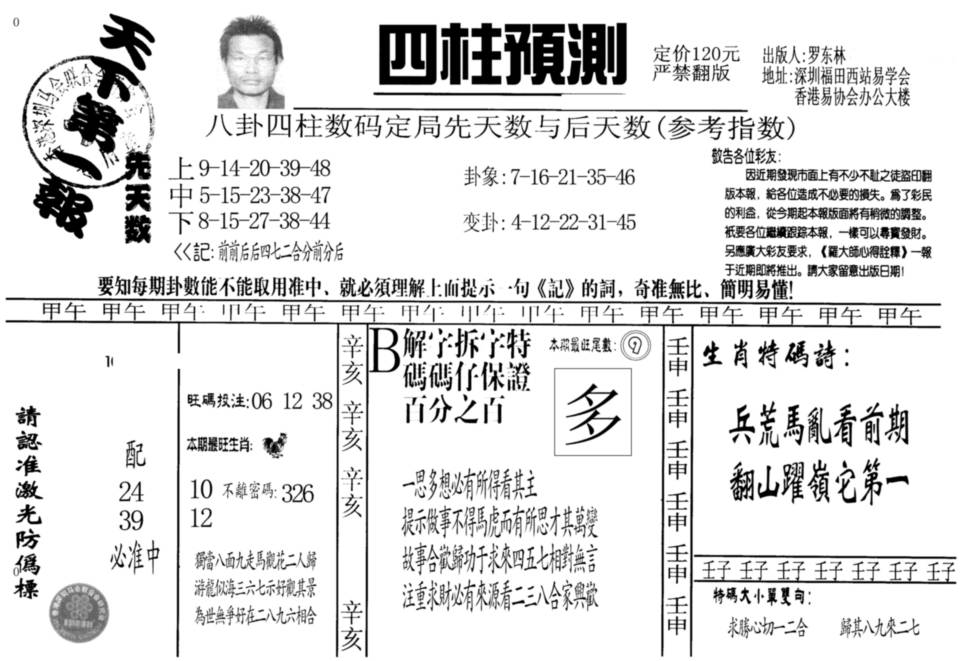 0
天下第一報
先天数
四柱預測
定价120元
严禁翻版
出版人:罗东林
地址:深圳福田西站易学会
香港易协会办公大楼
八卦四柱数码定局先天数与后天数(参考指数)
上 9-14-20-39-48
中 5-15-23-38-47
下 8-15-27-38-44
<<記: 前前后后四七二合分前分后
卦象: 7-16-21-35-46
变卦: 4-12-22-31-45
敬告各位彩友:
因近期發現市面上有不少不耻之徒盜印翻
版本報，給各位造成不必要的損失。爲了彩民
的利益，從今期起本報版面將有稍微的調整。
衹要各位繼續跟踪本報，一樣可以尋寶發財。
另應廣大彩友要求，《羅大師心得詮釋》一報
于近期即將推出。請大家留意出版日期!
要知每期卦數能不能取用准中、就必須理解上面提示一句《記》的詞，奇准無比、簡明易懂!
甲午 甲午 甲午 甲午 甲午 甲午 甲午 甲午 甲午 甲午 甲午 甲午 甲午 甲午 甲午
請認准激光防僞標
配
24
39
必准中
10
12
旺碼投注:06 12 38
本期最旺生肖:
不離密碼: 326
獨當八面九走馬觀花二人歸
游龍似海三六七示好觀其景
為世無爭好在二八九六相合
辛亥
辛亥
辛亥
辛亥
B解字拆字特
碼碼仔保證
百分之百
本期最旺尾數: 9
多
一思多想必有所得看其主
提示做事不得馬虎而有所思才其萬變
故事合歡歸功于求來四五七相對無言
注重求財必有來源看二三八合家興歡
壬申
壬申
壬申
壬申
壬申
壬申
生肖特碼詩:
兵荒馬亂看前期
翻山躍嶺它第一
壬子 壬子 壬子 壬子 壬子 壬子 壬子
特碼大小單雙句:
求勝心切一二合 歸其八九來二七